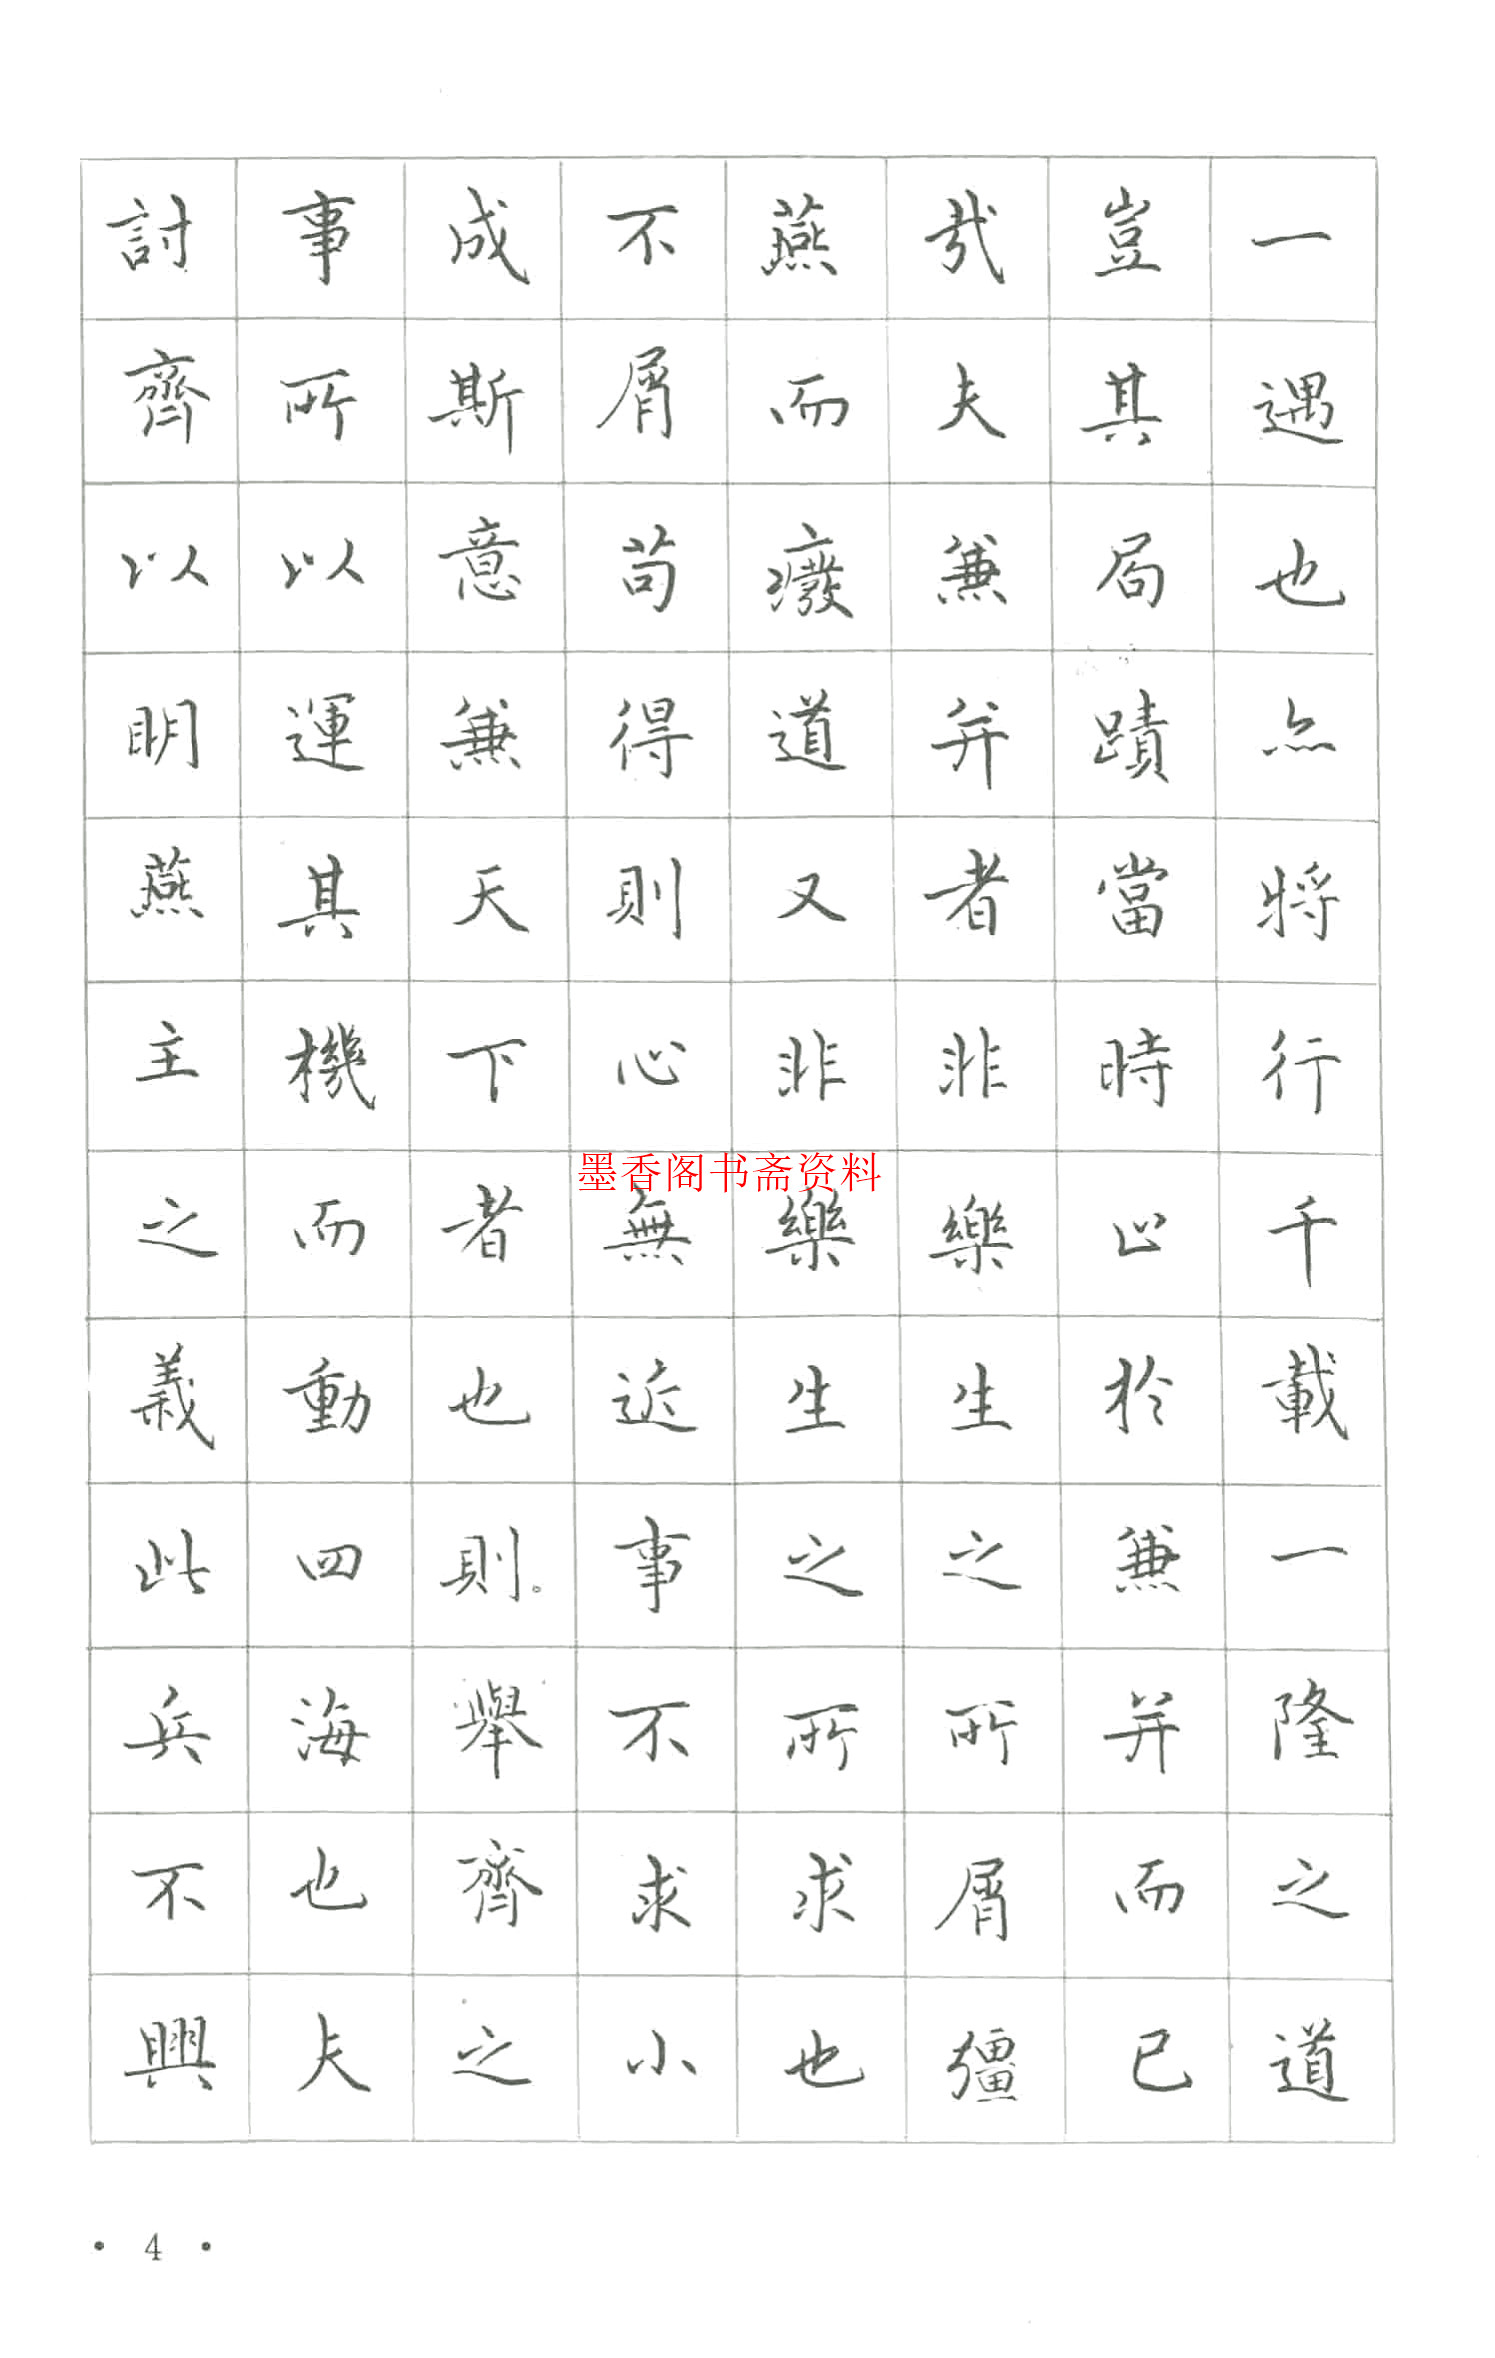 一遇也亦將行千載一隆之道
豈其局蹟當時止於兼并而已
哉夫兼并者非樂生之所屑彊
燕而廢道又非樂生之所求也
不屑苟得則心無近事不求小
成斯意兼天下者也則。舉齊之
事所以運其機而動四海也夫
討齊以明燕主之義此兵不興
墨香阁书斋资料
· 4 ·